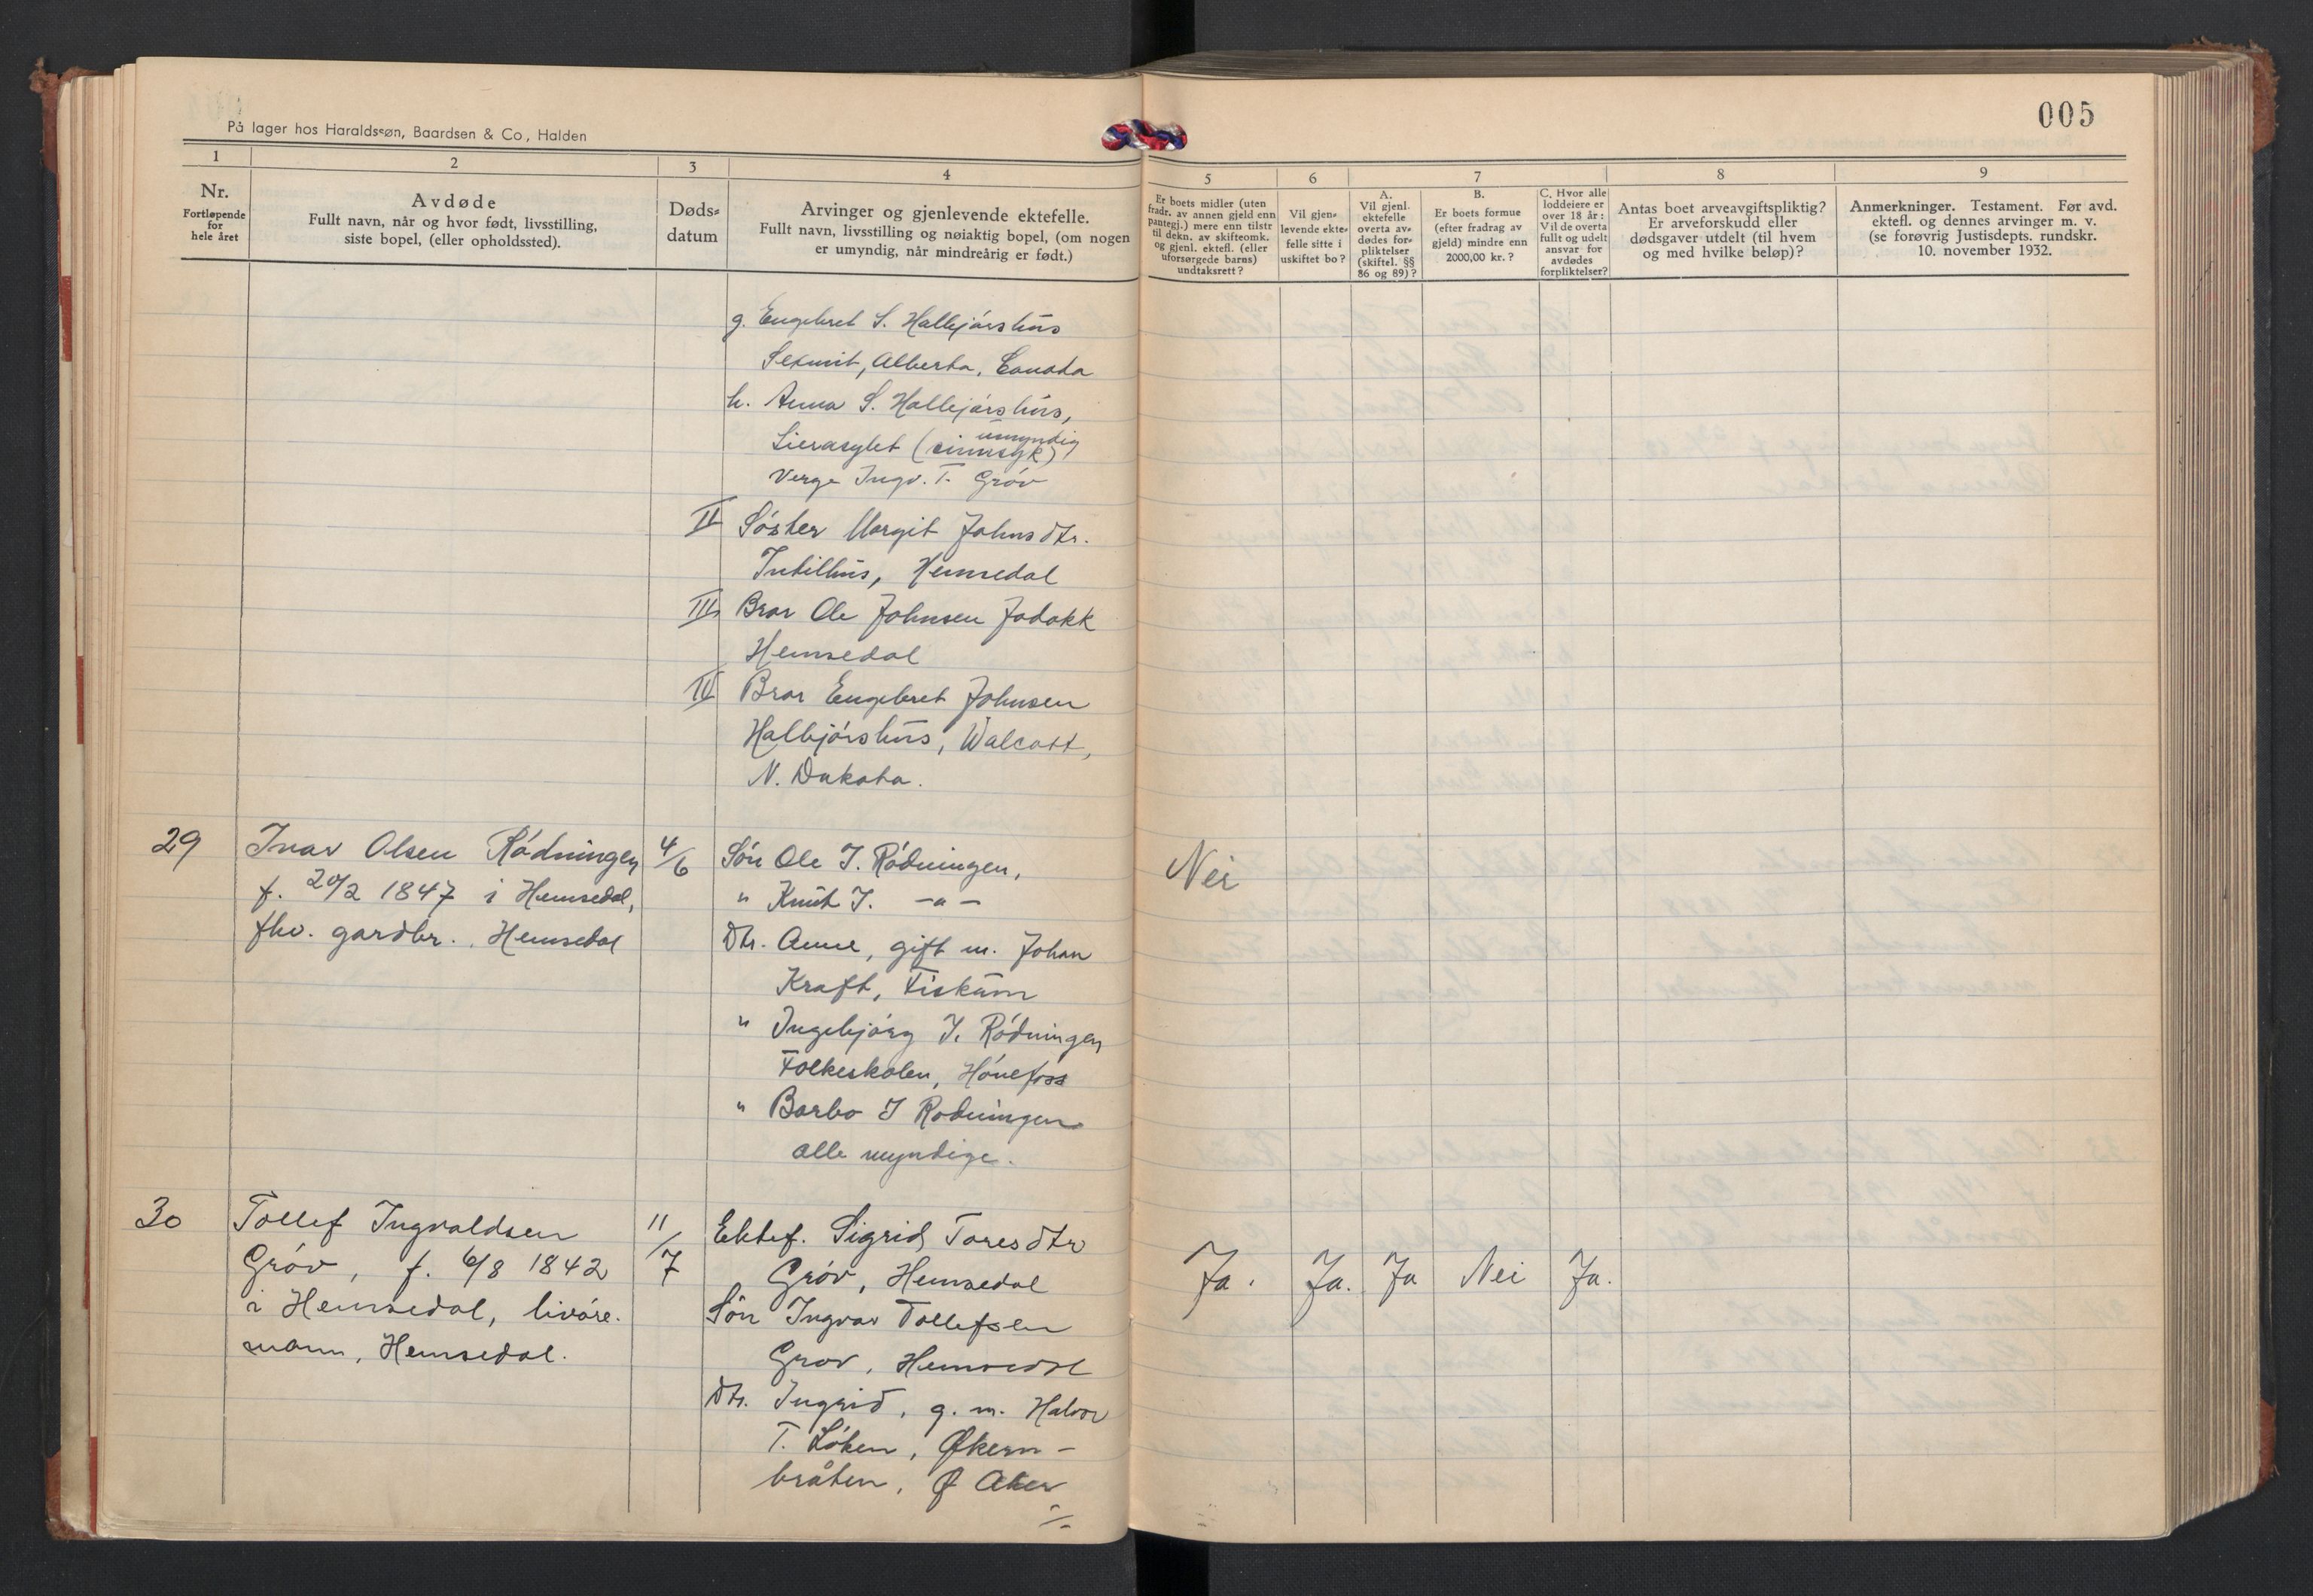 På lager hos Haraldssøn, Baardsen & Co, Halden
005
1
2
3
4
5
6
7
8
9
Nr.
Fortløpende
for
hele året
Avdøde
Fullt navn, når og hvor født, livsstilling,
siste bopel, (eller opholdssted).
Døds-
datum
Arvinger og gjenlevende ektefelle.
Fullt navn, livsstilling og nøiaktig bopel, (om nogen
er umyndig, når mindreårig er født.)
Er boets midler (uten
fradr. av annen gjeld enn
pantegj.) mere enn tilstr
til dekn. av skifteomk.
og gjenl. ektefl. (eller
uforsørgede barns)
undtaksrett?
Vil gjen-
levende ekte-
felle sitte i
uskiftet bo?
A.
Vil gjenl.
ektefelle
overta av-
dødes for-
pliktelser
(skiftel. §§
86 og 89)?
B.
Er boets formue
(efter fradrag av
gjeld) mindre enn
2000,00 kr.?
C. Hvor alle
loddeiere er
over 18 år:
Vil de overta
fullt og udelt
ansvar for
avdødes
forpliktelser?
Antas boet arveavgiftspliktig?
Er arveforskudd eller
dødsgaver utdelt (til hvem
og med hvilke beløp)?
Anmerkninger. Testament. Før avd.
ektefl. og dennes arvinger m. v.
(se forøvrig Justisdepts. rundskr.
10. november 1932.
g. Engebret S. Halbjórshus
Sexmit, Alberta, Canada
h. Anna S. Halbjórshus,
umyndig
Lierasylet (sinnsyk)
Verge Ingv. T. Gróv
II Sóster Margit Johnsdtr.
Intilhus, Hemsedal
III Bror Ole Johnsen Jodokk
Hemsedal
IV Bror Engebret Johnsen
Halbjórshus, Walcott,
N. Dakota.
29
Ivar Olsen Ródningen
f. 20/2 1847 i Hemsedal,
fhv. gardbr., Hemsedal
4/6
Són Ole I. Ródningen,
" Knut I. -"-
Dtr. Anne, gift m. Johan
Kraft, Fiskum
" Ingebjórg I. Ródningen
Folkeskolen, Hónefoss
" Barbo I Rodningen
alle myndige.
Nei
30
Tollef Ingvaldsen
Gróv, f. 6/8 1842
i Hemsedal, livóre-
mann, Hemsedal.
11/7
Ektef. Sigrid Toresdtr
Gróv, Hemsedal
Són Ingvar Tollefsen
Grov, Hemsedal
Dtr. Ingrid, g. m. Halvor
T. Lóken, Økern-
bråten, Ø Aker
Ja.
Ja.
Ja
Nei
Ja.